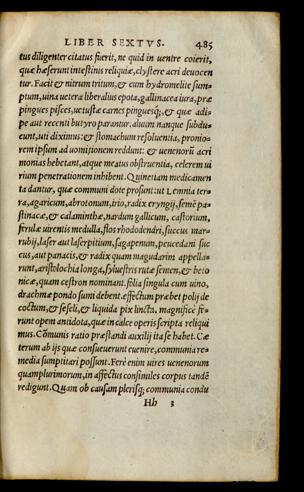 LIBER SEXTVS. 485
tus diligenter citatus fuerit, ne quid in uentre coierit,
quæ hæserunt intestinis reliquiæ, clystere acri deuocen
tur. Facit & nitrum tritum, & cum hydromelite sum-
ptum, uina uetera liberalius epota, gallinacea iura, præ
pingues pisces, uetustæ carnes pinguesq;, & quæ adi-
pe aut recenti butyro parantur. aluum nanque subdu-
cunt, uti diximus: & stomachum resoluentia, pronio-
rem ipsum ad uomitionem reddunt: & uenenorū acri
monias hebetant, atque meatus obstruentia, celerem ui
rium penetrationem inhibent. Quinetiam medicamen
ta dantur, quæ communi dote prosunt: ut Lemnia ter-
ra, agaricum, abrotonum, irio, radix eryngij, semē pa-
stinacæ, & calaminthæ, nardum gallicum, castorium,
ferulæ uirentis medulla, flos rhododendri, succus mar-
rubij, laser aut laserpitium, sagapenum, peucedani suc
cus, aut panacis, & radix quam magudarim appella-
runt, aristolochia longa, syluestris rutæ semen, & beto
nicæ, quam cestron nominant. folia singula cum uino,
drachmæ pondo sumi debent. æffectum præbet polij de
coctum, & seseli, & liquida pix lincta. magnificè fi-
runt opem antidota, quæ in calce operis scripta reliqui
mus. Cōmunis ratio præstandi auxilij ita se habet. Cæ
terum ab ijs quæ consueuerunt euenire, communia re-
media sumpti ari possunt. Ferè enim uires uenenorum
quamplurimorum, in affectus consimiles corpus tandē
redigunt. Quam ob causam plerisq; communia condu
Hh 3